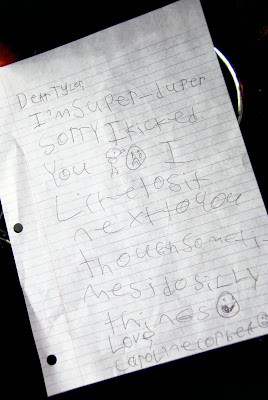 Dear Tyler
I'm super-duper
sorry I kicked
you I
Like to sit
next to you
thouh someti-
mes i do silly
things
Love
caroline